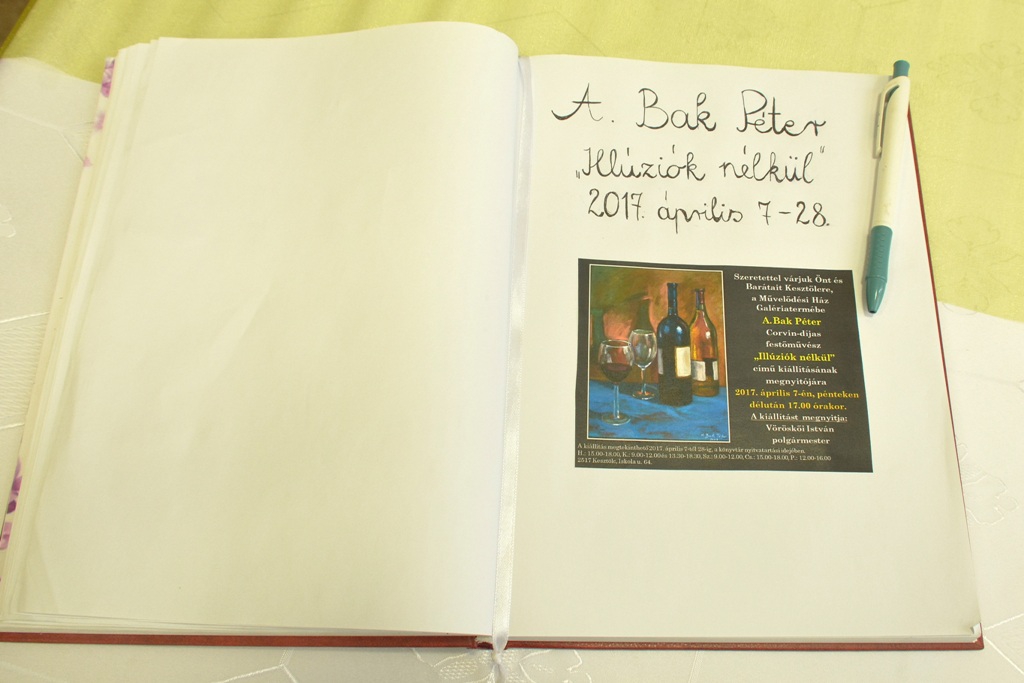 A. Bak Péter
„Illúziók nélkül”
2017. április 7-28.
Szeretettel várjuk Önt és
Barátait Kesztölcre,
a Művelődési Ház
Galériatermébe
A.Bak Péter
Corvin-díjas
festőművész
„Illúziók nélkül”
című kiállításának
megnyitójára
2017. április 7-én, pénteken
délután 17.00 órakor.
A kiállítást megnyitja:
Vöröskői István
polgármester
A kiállítás megtekinthető 2017. április 7-től 28-ig, a könyvtár nyitvatartási idejében.
H.: 15.00-18.00, K.: 9.00-12.00 és 13.30-18.30, Sz.: 9.00-12.00, Cs.: 15.00-18.00, P.: 12.00-16.00
2517 Kesztölc, Iskola u. 64.